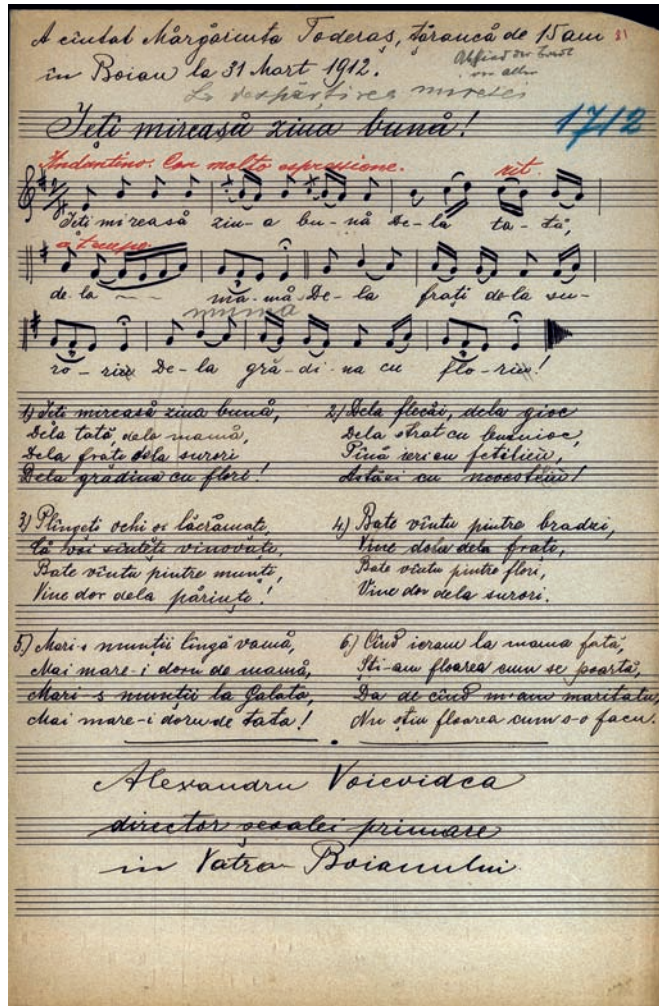 A cîntat Mărgăinta Toderaș, țărancă de 15 ani 81
în Boian la 31 Mart 1912.
La despărțirea miresei
Ieți mireasă ziua bună! 1712
Andantino. Con molto espressione. rit.
Ieți mireasă ziu-a bu-nă De-la ta-tă,
a tempo
de-la ma-mă De-la frați de la su-
mumă
ro-riu De-la gră-di-na cu flo-riu!
1) Ieți mireasă ziua bună,
Dela tată, dela mamă,
Dela frați dela surori
Dela grădina cu flori!
2) Dela flecăi, dela gioc
Dela strat cu busuioc,
Pînă ieri cu fetiliiu,
Astăzi cu nevesteliiu!
3) Plîngeți ochi și lăcrămați,
Că voi sînteți vinovați,
Bate vîntu pintre munți,
Vine dor dela părinți!
4) Bate vîntu pintre brazi,
Vine doru dela frați,
Bate vîntu pintre flori,
Vine dor dela surori.
5.) Mari-s munții lîngă vamă,
Mai mare-i doru de mamă,
Mari-s munții la Galata,
Mai mare-i doru de tata!
6) Cînd ieram la mama fată,
Știam floarea cum se poartă,
Da de cînd m-am maritatu,
Nu știu floarea cum s-o facu.
Alexandru Voievidca
director școalei primare
in Vatra Boianului